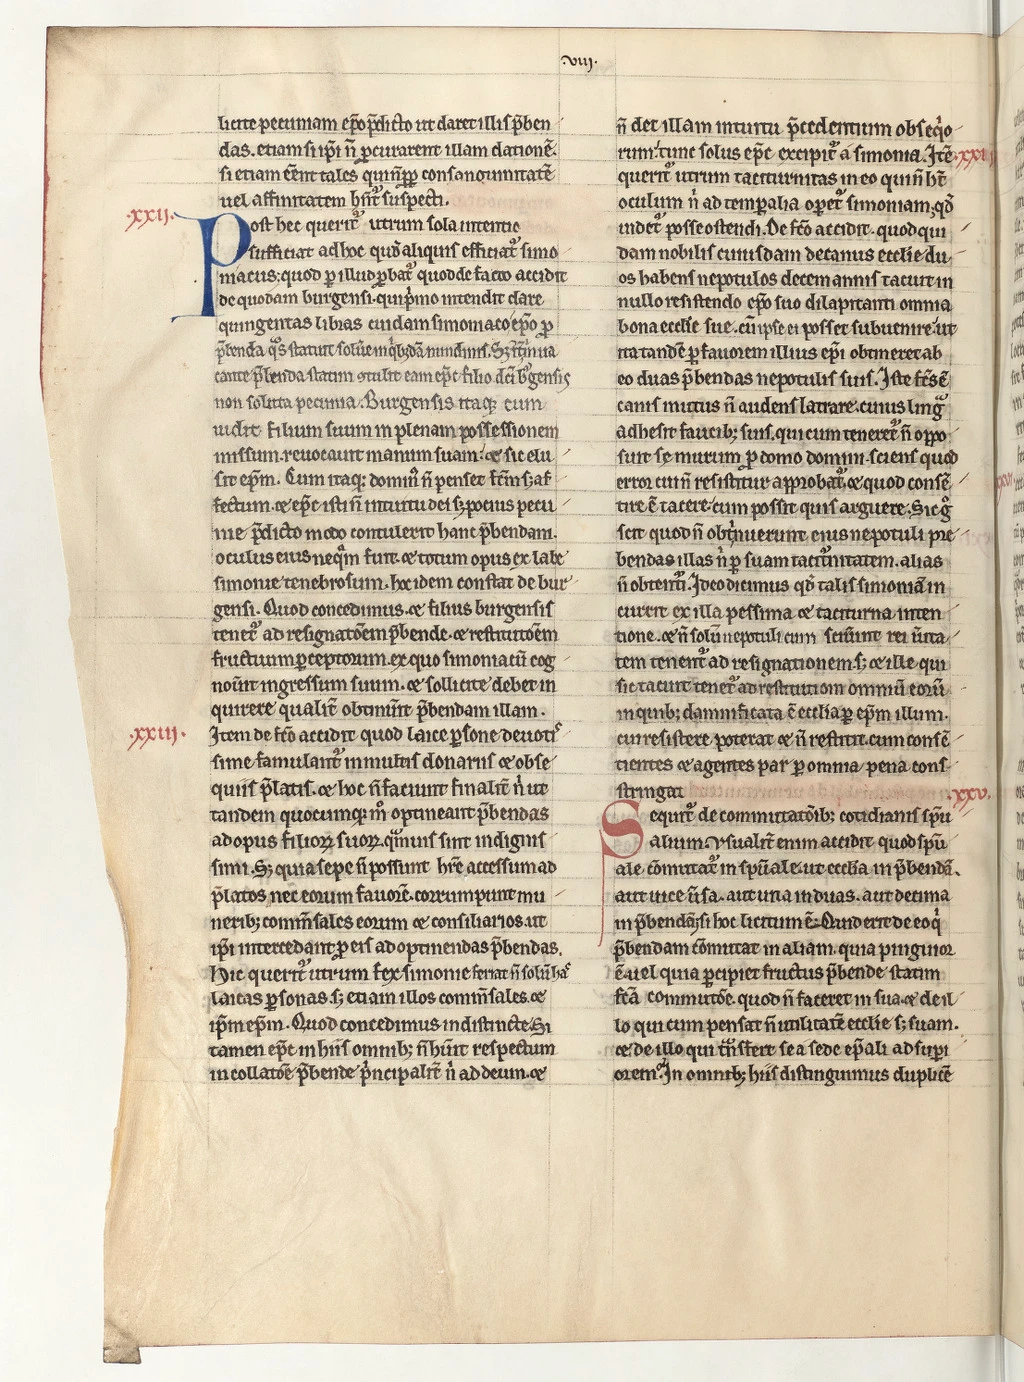 .viij.
licite pecuniam ep̄o p̄dicto ut daret illis p̄ben
das. etiam si ip̄i n̄ ꝓcurarent illam dationē.
si etiam eēnt tales qui nuꝑ consanguinitatē
uel affinitatem hn̄t suspecti.
.xxij.
Post hec querit᷑ utrum sola intentio
sufficiat ad hoc qd̄ aliquis efficiat᷑ simo
niacus. quod ꝑ illud ꝓbat᷑ quod de facto accidit
de quodam burgensi. qui p̄mo intendit dare
quingentas libras cuidam simoniaco ep̄o ꝓ
p̄benda q̄s statuit soluē in qⁱbꝫdā nundinis. Sꝫ
cante p̄benda statim ep̄c filio dc̄i bᵒgensis
non soluta pecunia. Burgensis itaqꝫ cum
uidit filium suum in plenam possessionem
missum. reuocauit manum suam. ⁊ sic elu
sit ep̄m. Cum itaqꝫ dominꝰ n̄ penset fc̄m sꝫ af
fectum. ⁊ ep̄c isti n̄ intuitu dei sꝫ pocius pecu
nie p̄dicto modo contulerit hanc p̄bendam.
oculus eius nequam fuit. ⁊ totum opus ex labe
simonie tenebrosum. hoc idem constat de bur
gensi. Quod concedimus. ⁊ filius burgensis
tenet᷑ ad resignatōem p̄bende. ⁊ restitutōem
fructuum ꝑceptorum. ex quo simoniacū cog
nouit ingressum suum. ⁊ sollicite debet in
quirere qualit̄ obtinuit p̄bendam illam.
.xxiij.
Item de fc̄o accidit quod laice ꝑsone deuotis
sime famulant᷑ in multis donariis ⁊ obse
quiis p̄latis. ⁊ hoc n̄ faciunt finalit̄ nⁱ ut
tandem quocumqꝫ mᵒ optineant p̄bendas
ad opus filioꝝ suoꝝ. qᵃmuis sint indignis
simi. Sꝫ quia sepe n̄ possunt hr̄e accessum ad
p̄latos nec eorum fauorē. corrumpunt mu
neribꝫ com̄sales eorum ⁊ consiliarios. ut
ip̄i intercedant ꝓ eis ad optinendas p̄bendas.
Hic querit᷑ utrum fex simonie feriat n̄ solū has
laicas ꝑsonas. sꝫ etiam illos com̄sales. ⁊
ip̄m ep̄m. Quod concedimus indistincte. Si
tamen ep̄c in hiis omnibꝫ n̄ hūit respectum
in collatōe p̄bende pⁱncipalit̄ nⁱ ad deum. ⁊
n̄ det illam intuitu p̄cedentium obseqⁱo
rum. tunc solus ep̄c excipit᷑ a simonia. Itē
querit᷑ utrum taciturnitas in eo qui n̄ ht̄
oculum nⁱ ad temporalia operet᷑ simoniam, qd̄
uidet᷑ posse ostendi. De fc̄o accidit. quod qui
dam nobilis cuiusdam decanus ecclie du
os habens nepotulos decem annis tacuit in
nullo resistendo ep̄o suo dilapitanti omnia
bona ecclie sue. cū ipse ei posset subuenire. ut
ita tandē ꝑ fauorem illius ep̄i obtineret ab
eo duas p̄bendas nepotulis suis. Iste fc̄s ē
canis mutus n̄ audens latrare. cuius lingᵃ
adhesit faucibꝫ suis. qui cum teneret᷑ n̄ oppo
suit se murum ꝓ domo domini. sciens quod
error cui n̄ resistitur approbat᷑. ⁊ quod consē
tire ē tacere. cum possit quis arguere. Sic gᵒ
scit quod n̄ obtinuerunt eius nepotuli pre
bendas illas nⁱ ꝑ suam taciturnitatem. alias
n̄ obtenti. Ideo dicimus qd̄ talis simoniā in
currit ex illa pessima ⁊ taciturna inten
tione. ⁊ n̄ solū nepotuli cum sciuint rei ūita
tem tenent᷑ ad resignationem. sꝫ ⁊ ille qui
sic tacuit tenet᷑ ad restitutiom omniū eorū
in quibꝫ damnificata ē ecclia ꝑ ep̄m illum.
cui resistere poterat ⁊ n̄ restitit. cum consē
tientes ⁊ agentes par ꝑ omnia pena cons
stringat
.xxv.
Sequit᷑ de commutatōibꝫ cotidianis sp̄u
alium. Vsualit̄ enim accidit quod sp̄u
ale cōmutat᷑ in sp̄uale. ut ecclia in p̄bendā.
aut uice ūsa. aut una in duas. aut decima
in p̄bendā. si hoc licitum ē. Quid erit de eo qⁱ
p̄bendam cōmutat in aliam. quia pinguior
ē. uel quia ꝑcipiet fructus p̄bende statim
fc̄a commutōe. quod n̄ faceret in sua. ⁊ de il
lo qui cum pensat n̄ utilitatē ecclie sꝫ suam.
⁊ de illo qui tn̄sfert se a sede ep̄ali ad supi
orem. In omnibꝫ hiis distinguimus duplicē